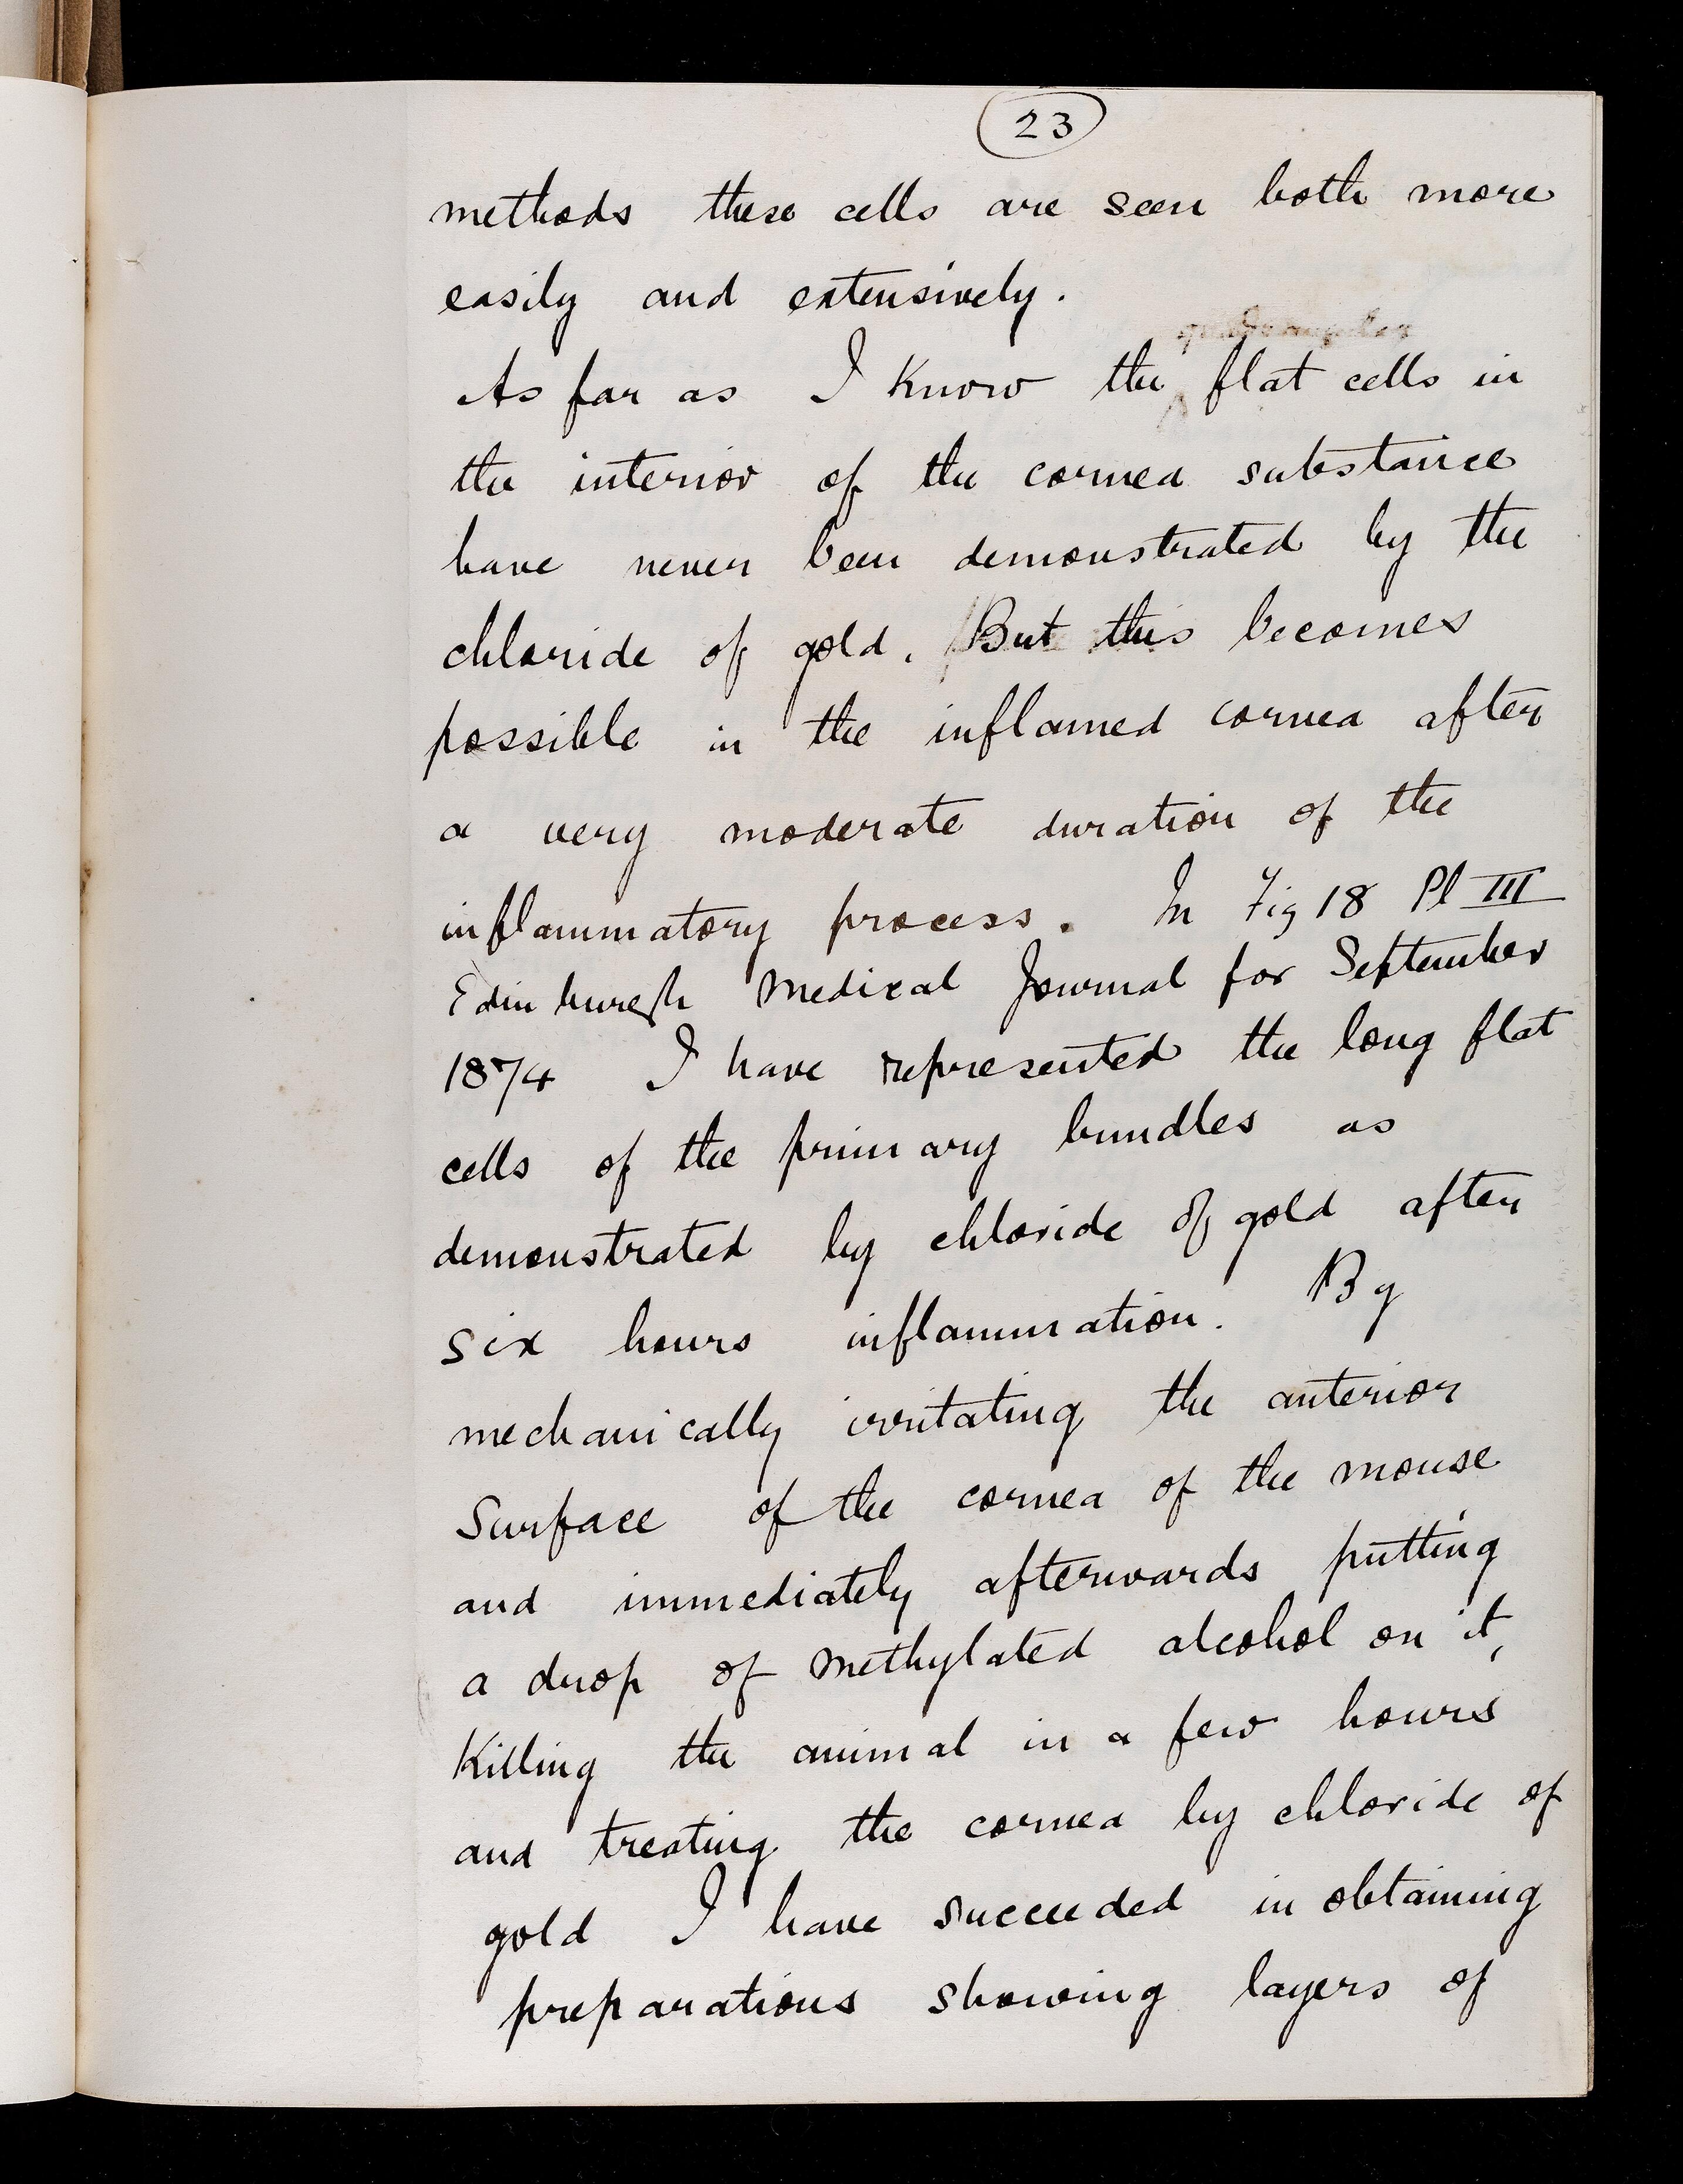 23
methods these cells are seen both more
easily and extensively.
quadrangular
As far as I know the ‸ flat cells in
the interior of the cornea substance
have never been demonstrated by the
chloride of gold. But this becomes
possible in the inflamed cornea after
a very moderate duration of the
inflammatory process. In Fig 18 Pl III
Edinburgh Medical Journal for September
1874 I have represented the long flat
cells of the primary bundles as
demonstrated by chloride of gold after
six hours inflammation. By
mechanically irritating the anterior
Surface of the cornea of the mouse
and immediately afterwards putting
a drop of methylated alcohol on it,
Killing the animal in a few hours
and treating the cornea by chloride of
gold I have succeeded in obtaining
preparations showing layers of